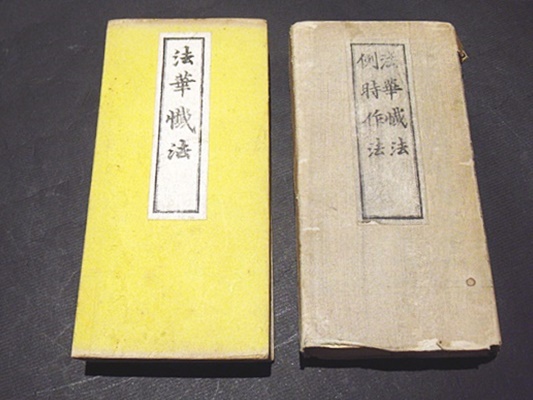 法華懺法
法華懺法
例時作法